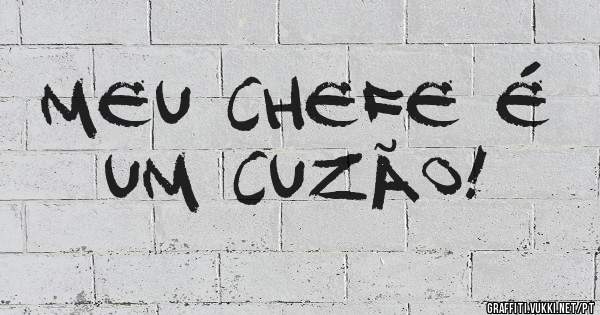 MEU CHEFE É
UM CUZÃO!
GRAFFITI.VUKKI.NET/PT